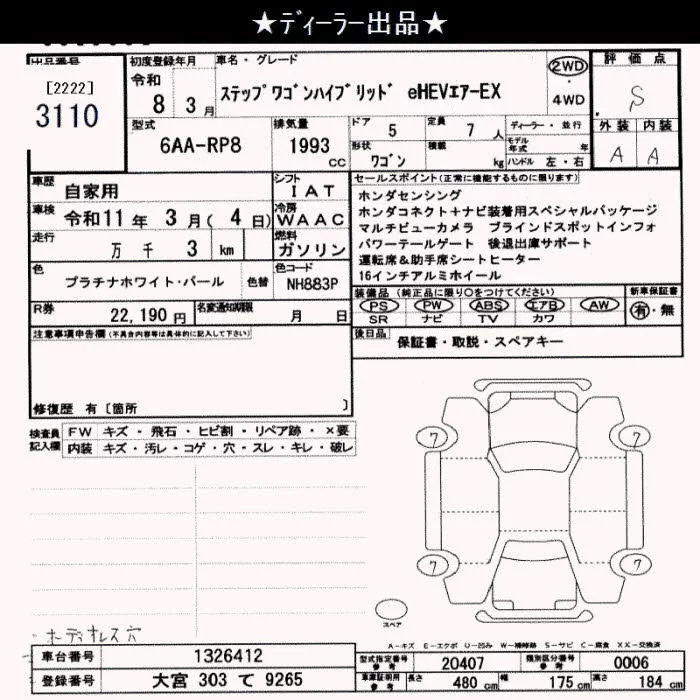 ★ディーラー出品★
出品番号
[2222]
3110
初度登録年月
令和
8 3月
車名・グレード
ステップワゴンハイブリッド eHEVエアーEX
2WD
・
4WD
評価点
S
外装 内装
A A
型式
6AA-RP8
排気量
1993
cc
ドア 5
定員 7 人
ディーラー・並行
形状 ワゴン
積載 kg
モデル年式 年
ハンドル 左・右
車歴 自家用
シフト
IAT
車検 令和11年 3月(4日)
冷房
WAAC
走行 万 千 3 km
燃料
ガソリン
色 プラチナホワイト・パール
色替
色コード
NH883P
R券 22,190円
名変通知期限 月 日
セールスポイント(正常に機能するものに限ります)
ホンダセンシング
ホンダコネクト+ナビ装着用スペシャルパッケージ
マルチビューカメラ ブラインドスポットインフォ
パワーテールゲート 後退出庫サポート
運転席&助手席シートヒーター
16インチアルミホイール
装備品(純正品に限り○をつけてください)
新車保証書
PS PW ABS エアB AW
SR ナビ TV カワ
有・無
後日品 保証書・取説・スペアキー
注意事項申告欄(不具合内容等は具体的に記入して下さい)
修復歴 有〔箇所 〕
検査員
記入欄
FW キズ・飛石・ヒビ割・リペア跡・×要
内装 キズ・汚レ・コゲ・穴・スレ・キレ・破レ
7 7
7 7
スペア
・ホディオレス穴
A-キズ E-エクボ U-凹み W-補修跡 S-サビ C-腐食 XX-交換済
車台番号 1326412
型式指定番号 参考 20407
類別区分番号 参考 0006
登録番号 大宮 303 て 9265
車庫証明用 参考 長さ 480 cm 幅 175 cm 高さ 184 cm